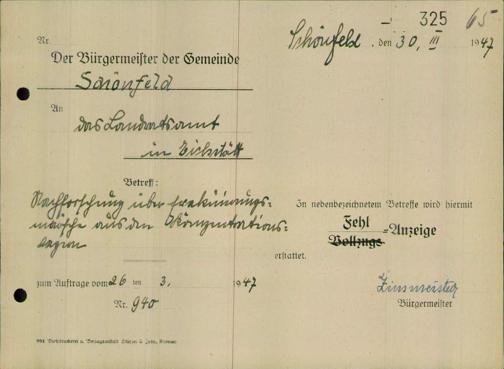 - 325 65
Schönfeld, den 30. III 1947
Nr.
Der Bürgermeister der Gemeinde
Schönfeld
An
das Landratsamt
in Eichstätt
Betreff:
Nachforschung über
märsche aus den Konzentrations-
lagern
In nebenbezeichnetem Betreffe wird hiermit
Fehl
Vollzugs-Anzeige
erstattet.
zum Auftrage vom 26 ten 3. 1947
Nr. 940
Bürgermeister